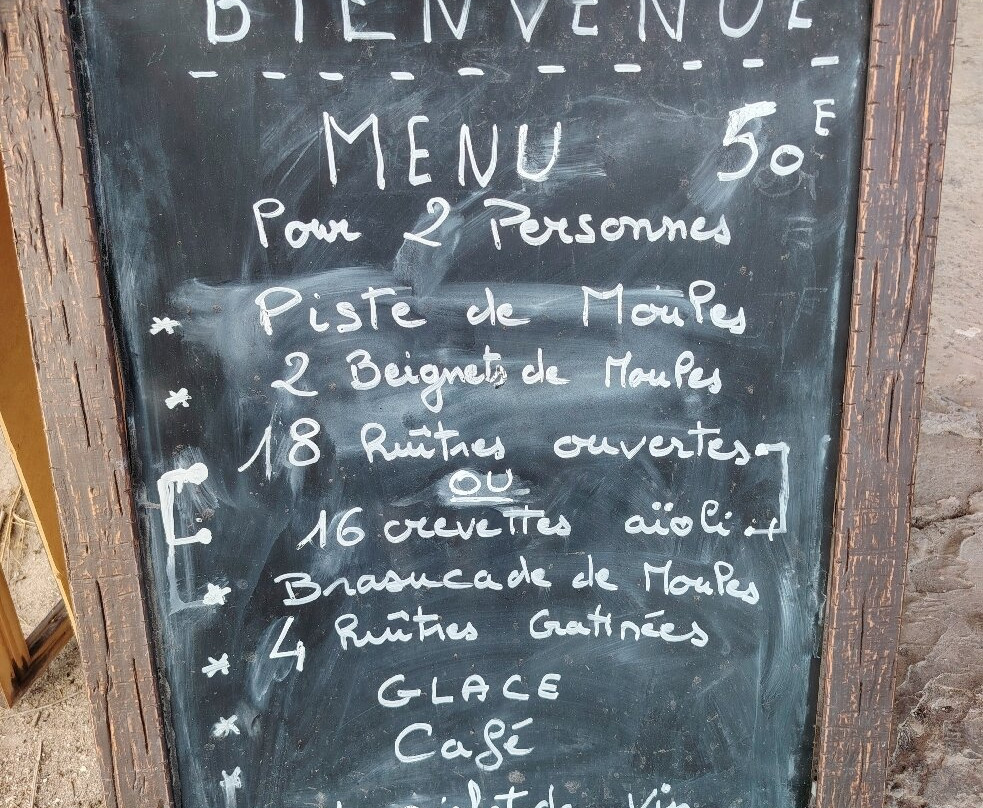 BIENVENUE
MENU 50 E
Pour 2 Personnes
* Piste de Moules
* 2 Beignets de Moules
18 Huîtres ouvertes
OU
16 crevettes aïoli
* Brasucade de Moules
* 4 Huîtres Gratinées
* GLACE
* Café
de Vin